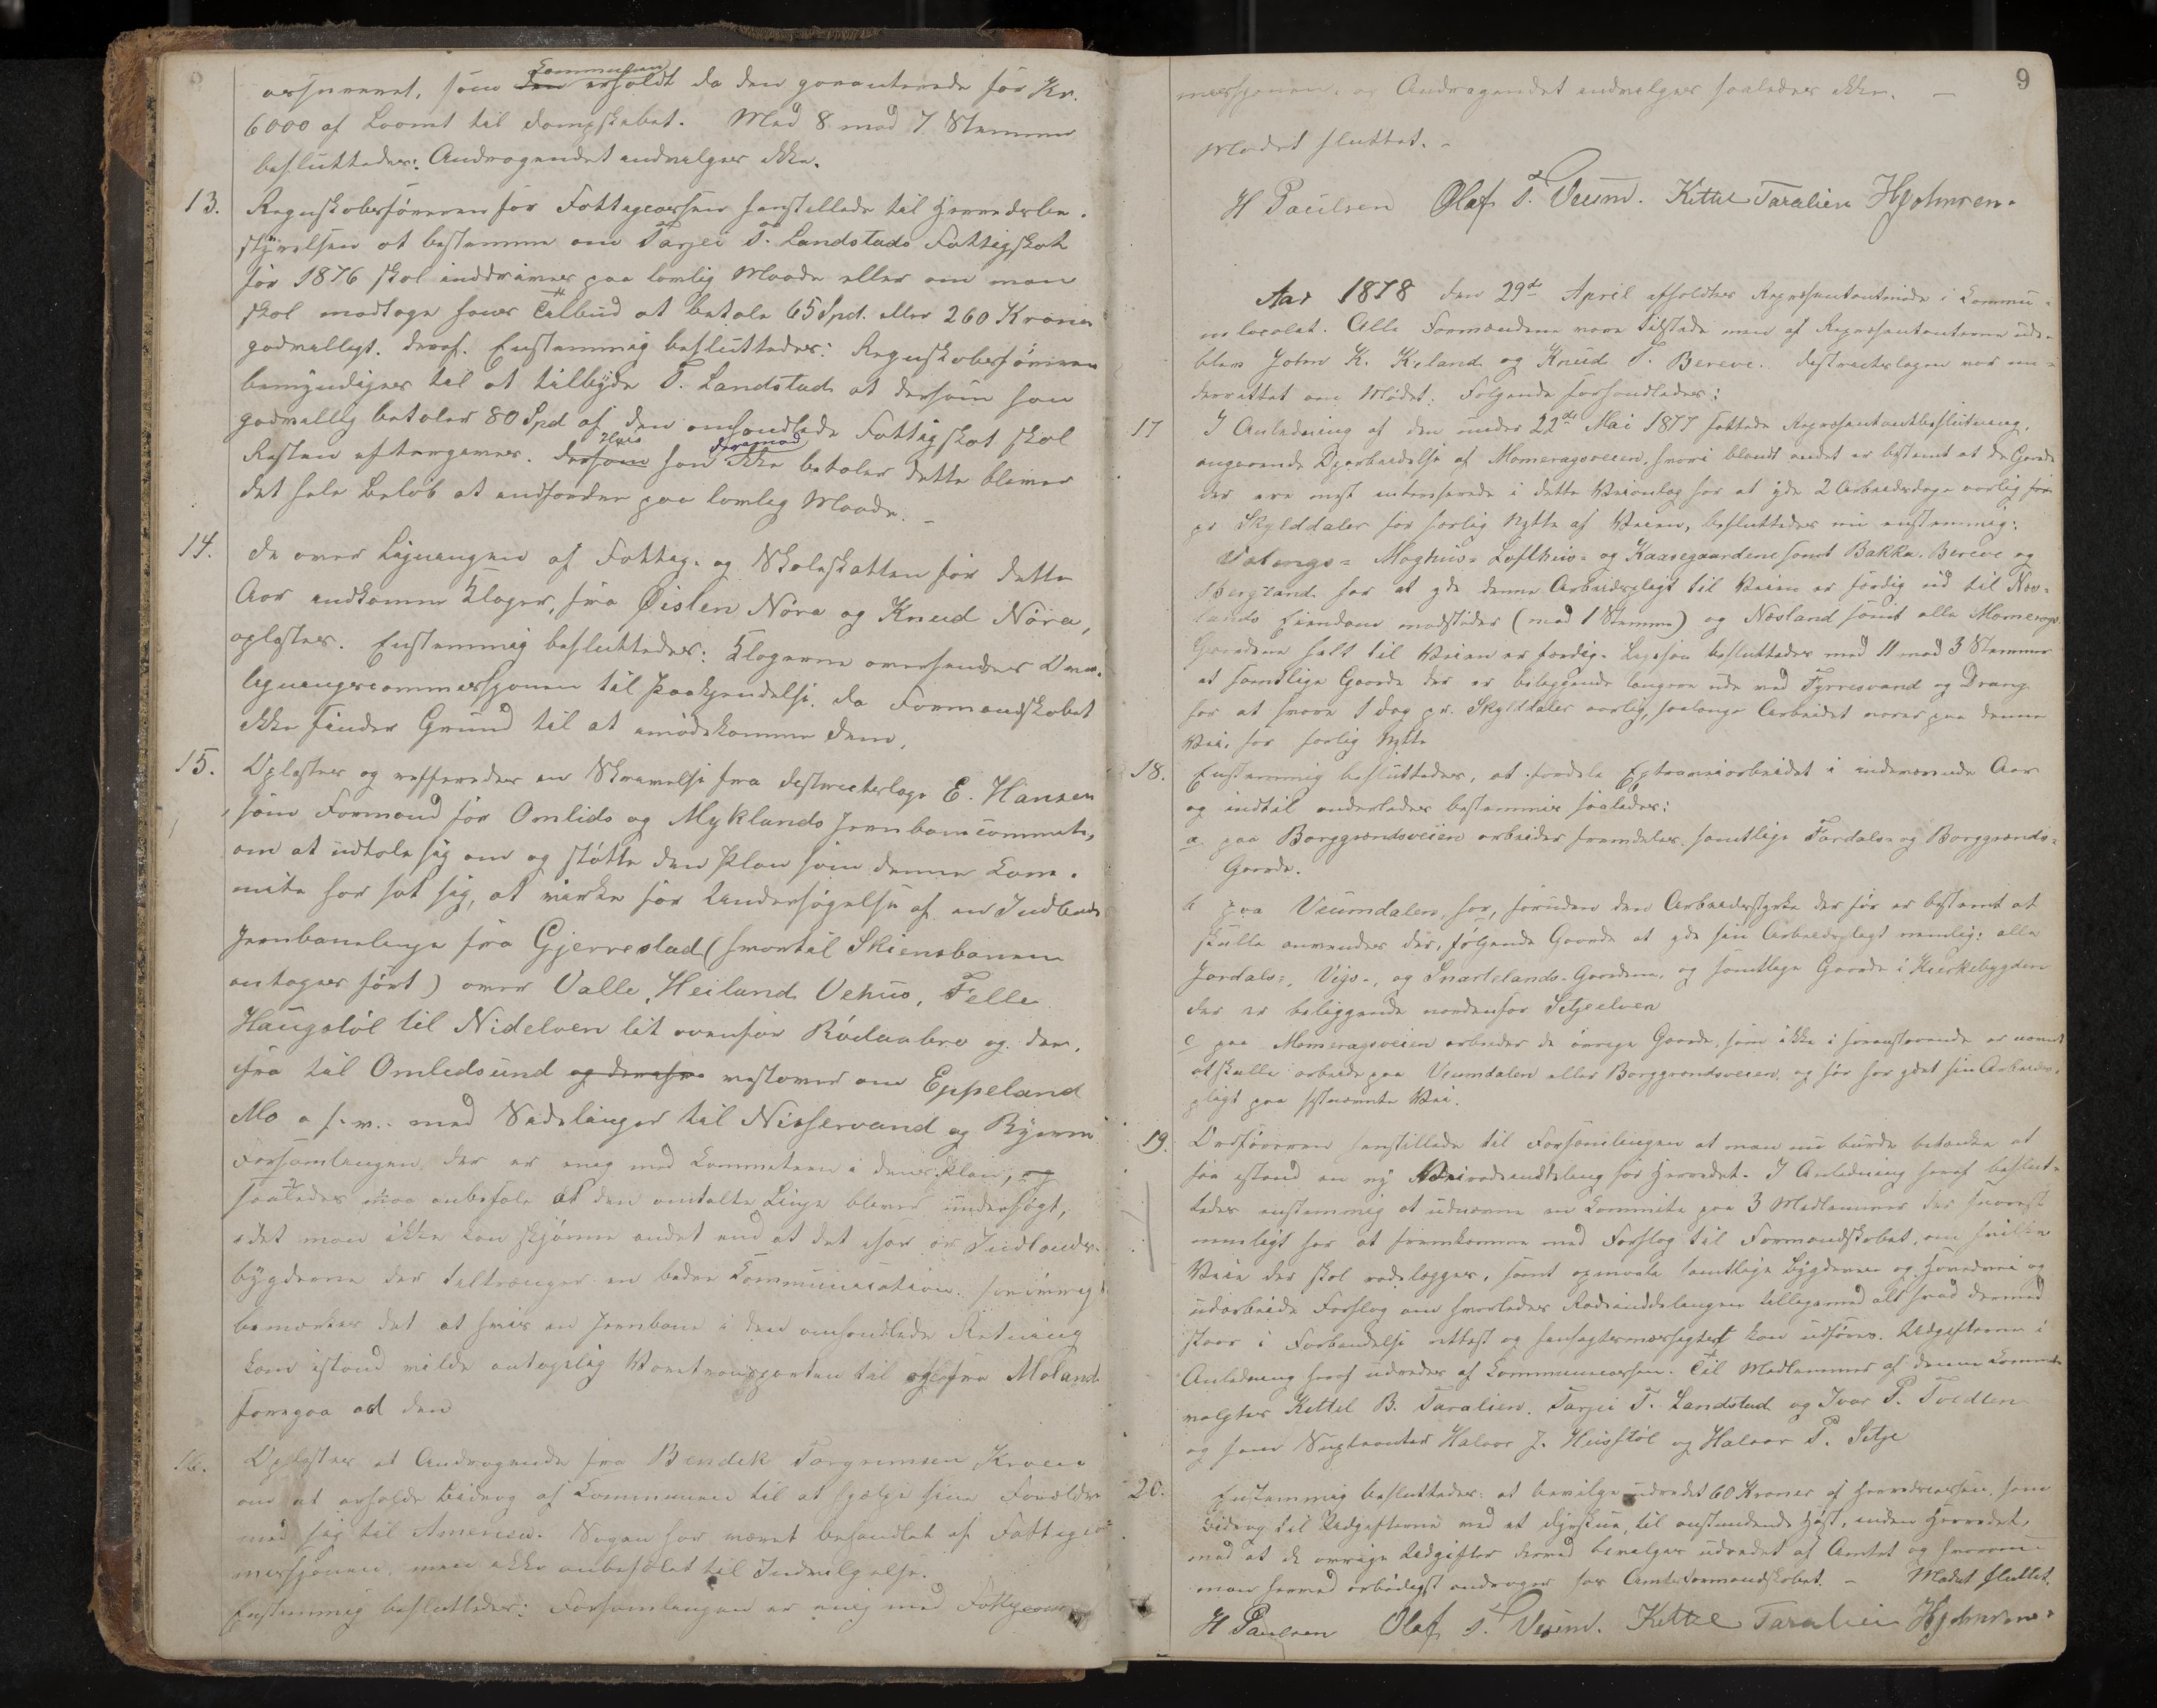 Kommunen
den erholdt da den garanterede for Kr.
6000 af Laanet til Dampskabet. Med 8 mod 7 Stemmer
besluttedes: Andragendet indvilges ikke.
13. Regnskabsføreren for Fattigcassen henstillede til Herredsbe-
styrelsen at bestemme om Tarjei T. Landstads Fattigskat
for 1876 skal inddrives paa lovlig Maade eller om man
skal modtage hans Tilbud at betale 65 Spd. eller 260 Kroner
godvilligt deraf. Enstemmig besluttedes: Regnskabsføreren
bemyndiges til at tilbyde T. Landstad at dersom han
godvillig betaler 80 Spd af den omhandlede Fattigskat skal
Resten eftergives. Hvis dersom han derimod ikke betaler dette bliver
det hele Beløb at indfordre paa lovlig Maade. –
14. Da over Ligningen af Fattig- og Skoleskatten for dette
Aar indkomne Klager, fra Øislen Nøra og Knud Nøra,
oplæstes. Enstemmig besluttedes: Klagerne oversendes Over-
ligningscommissionen til Paakjendelse, da Formandskabet
ikke finder Grund til at imødekomme dem.
15. Oplæstes og refferedes en Skrivelse fra Distrectslæge E. Hansen
som Formand for Omlids og Myklands Jernbanecommite,
om at udtale sig om og støtte den Plan som denne Com-
mite har sat sig, at virke for Undersøgelse af en Indlands
Jernbanelinje fra Gjerrestad (hvortil Skiensbanen
antages ført) over Valle, Heiland Vehus, Felle
Haugstøl til Nidelven lit ovenfor Rødaabro og der-
ifra til Omlidsund og derifra vestover om Eppeland
Mo o. s. v. med Sidelinger til Nisservand og Byerne
Forsamlingen, der er enig med Commiteen i denes Plan, og
saaledes maa anbefale at den omtalte Linje bliver undersøgt,
idet man ikke kan skjønne andet end at det især er Indlands-
bygderne der tiltrænger en bedre Communication. Forøvrigt
bemærkes det at hvis en Jernbane i den omhandlede Retning
kom istand vilde antagelig Varetransporten til og fra Moland
foregaa ad den
16. Oplæstes et Andragende fra Bendik Torgrimsen Kroen
om at erholde Bidrag af Kommunen til at hjælpe sine Forældre
med sig til Amerika. Sagen har været behandlet af Fattigcom-
missjonen, men ikke anbefalet til Indvilgelse.
Enstemmig besluttedes: Forsamlingen er enig med Fattigcom-
9
missjonen, og Andragendet indvilges saaledes ikke. –
Mødet sluttet. –
H Paulsen Olaf T. Veum. Kittil Taralien HJohnsen.
Aar 1878 den 29de April afholdtes Repræsentantmøde i Kommu-
nelocalet. Alle Formændene vare tilstede men af Repræsentanterne ude-
blev John K. Kiland og Knud T. Bereve. Distrectslægen var un-
derrettet om Mødet. Følgende forhandledes:
17 I Anledning af den under 22de Mai 1877 fattede Repræsentantbeslutning,
angaaende Oparbeidelse af Momeragsveien, hvori blandt andet er bestemt at de Gaarde
der ere mest interesserede i dette Veianlæg har at yde 2 Arbeidsdage aarlig for
pr Skylddaler for særlig Nytte af Veien, besluttedes nu enstemmig:
Veterngs- Moghus- Lofthus- og Kaasegaardene samt Bakka, Bereve og
Bergland har at yde denne Arbeidspligt til Veien er færdig ud til Næs-
lands Eiendom modstides (mod 1 Stemme) og Næsland samt alle Momerags-
Gaardene helt til Veien er færdig. Ligesaa besluttedes med 11 mod 3 Stemmer
at samtlige Gaarde der er beliggende langere ude ved Fyrresvand og Drang
har at svare 1 Dag pr. Skylddaler aarlig, saalænge Arbeidet varer paa denne
Vei, for særlig Nytte
18. Enstemmig besluttedes, at fordele Extraveiarbeidet i indeværende Aar
og indtil anderledes bestemmes saaledes:
a paa Borggrændsveien arbeider fremdeles samtlige Fardals- og Borggrænds-
Gaarde.
b paa Veumdalen, har, foruden den Arbeidsstyrke der før er bestemt at
skulle anvendes der, følgende Gaarde at yde sin Arbeidspligt nemlig: alle
Jordals-, Vigs-, og Snartelands-Gaardene, og samtlige Gaarde i Kirkebygden
der er beliggende nordenfor Sitjeelven
c paa Momeragsveien arbeider de øvrige Gaarde, som ikke i foranstaaende er nævnt
at skulle arbeide paa Veumdalen eller Borggrændsveien, og før har ydet sin Arbeids-
pligt paa sidstnævnte Vei.
19. Ordføreren henstillede til Forsamlingen at man nu burde betænke at
faa istand en ny Veirodeinddeling for Herredet. I Anledning heraf beslut-
tedes enstemmig at udnævne en Commite paa 3 Medlemmer der snarest
muligt har at fremkomme med Forslag til Formandskabet, om hvilke
Veie der skal rodelægges, samt opmaale samtlige Bygdeveie og Hovedvei og
udarbeide Forslag om hvorledes Rodeinddelingen tilligemed alt hvad dermed
staar i Forbindelse rettest og hensigtsmæssigst kan udføres. Udgifterne i
Anledning heraf udredes af Kommunecassen. Til Medlemmer af denne Commite
valgtes Kittil B. Taralien. Tarjei T. Landstad og Ivar P. Tvedten
og som Suplianter Halvor J. Husstøl og Halvor P. Sitje
20. Enstemmig besluttedes: at bevilge udredet 60 Kroner af Herredscassen, som
Bidrag til Udgifterne ved et Dyrskue, til anstundende Høst, inden Herredet,
mod at de øvrige Udgifter derved bevilges udredet af Amtet og hvorom
man herved ærbødigst andrager hos Amtsformandskabet. – Mødet sluttet.
H Paulsen Olaf T. Veum. Kittil Taralien HJohnsen.